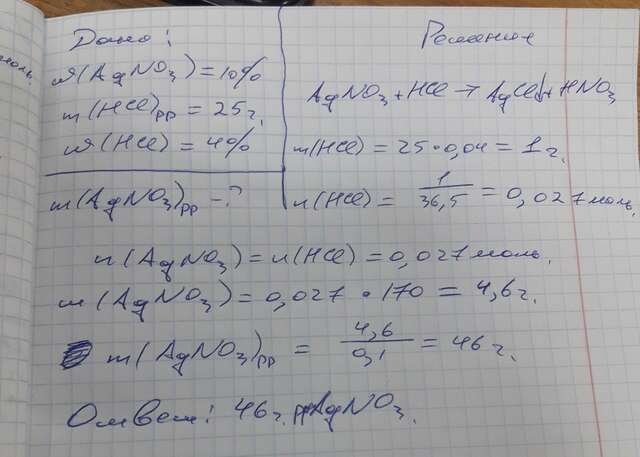 моль.
Дано:
ω(AgNO₃) = 10%
m(HCl)рр = 25 г.
ω(HCl) = 4%
m(AgNO₃)рр - ?
Решение
AgNO₃ + HCl → AgCl↓ + HNO₃
m(HCl) = 25 • 0,04 = 1 г.
n(HCl) = 1/36,5 = 0,027 моль.
n(AgNO₃) = n(HCl) = 0,027 моль.
m(AgNO₃) = 0,027 • 170 = 4,6 г.
m(AgNO₃)рр = 4,6/0,1 = 46 г.
Ответ: 46 г. рр AgNO₃.